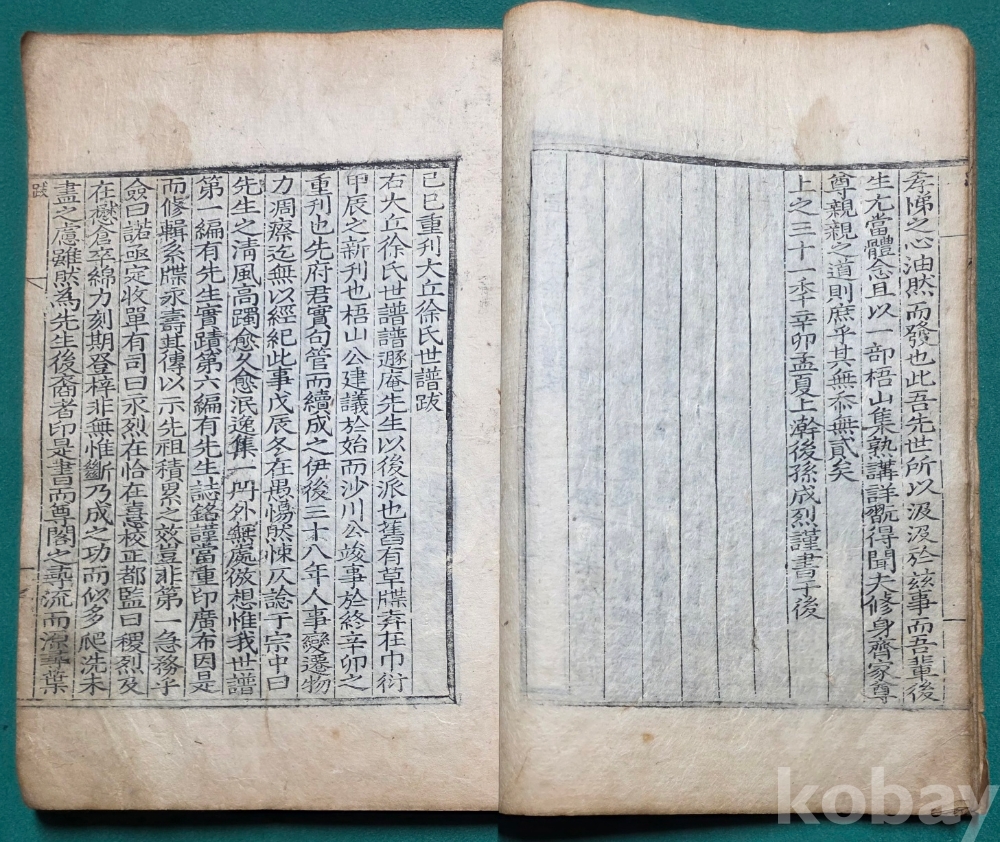 孝悌之心油然而發也此吾先世所以汲汲於玆事而吾輩後
生尤當體念且以一部梧山集熟講詳翫得聞夫修身齊家尊
尊親親之道則庶乎其無忝無貳矣
上之三十一季辛卯孟夏上澣後孫成烈謹書于後
己巳重刊大丘徐氏世譜跋
右大丘徐氏世譜譜遯庵先生以後派也舊有草牒弆在巾衍
甲辰之新刊也梧山公建議於始而沙川公竣事於終辛卯之
重刊也先府君實句管而續成之伊後三十八年人事變遷物
力凋瘵迄無以經紀此事戊辰冬在愚惕然悚仄諗于宗中曰
先生之淸風高躅愈久愈泯逸集一冊外無處倣想惟我世譜
第一編有先生實蹟第六編有先生誌銘謹當重印廣布因是
而修輯系牒永壽其傳以示先祖積累之效豈非第一急務乎
僉曰諾亟定收單有司曰永烈在恰在憙校正都監曰稷烈及
在懋倉卒綿力刻期登梓非無惟斷乃成之功而似多爬洗未
盡之慮雖然爲先生後裔者印是書而尊閣之尋流而溯尋葉
跋
kobay